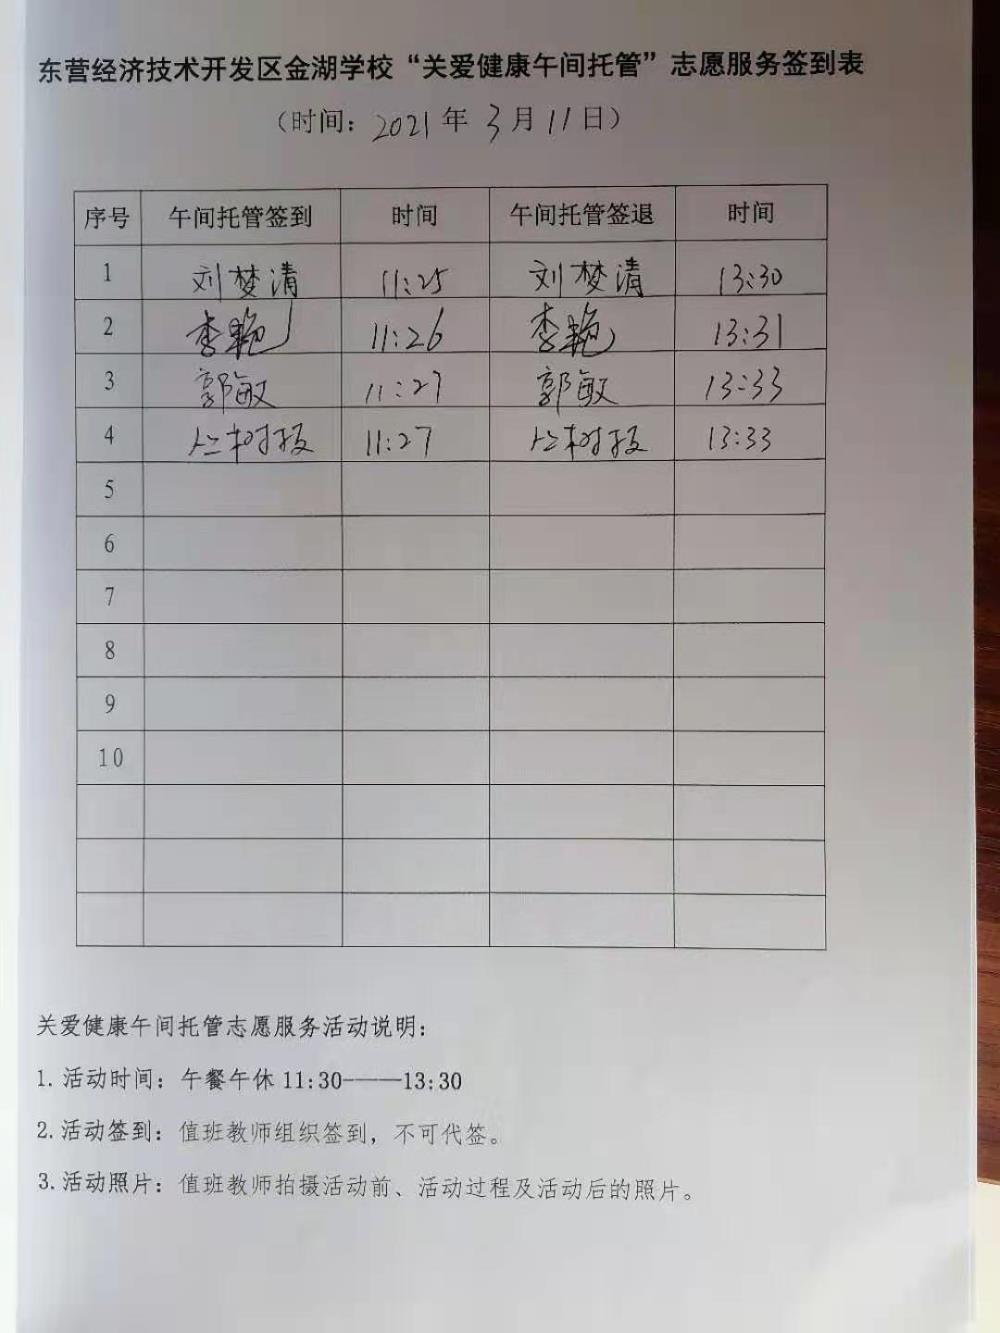 东营经济技术开发区金湖学校“关爱健康午间托管”志愿服务签到表
（时间：2021年3月11日）
序号 午间托管签到 时间 午间托管签退 时间
1 刘梦清 11:25 刘梦清 13:30
2 李艳 11:26 李艳 13:31
3 郭敏 11:27 郭敏 13:33
4 11:27 13:33
5
6
7
8
9
10
关爱健康午间托管志愿服务活动说明：
1.活动时间：午餐午休11:30——13:30
2.活动签到：值班教师组织签到，不可代签。
3.活动照片：值班教师拍摄活动前、活动过程及活动后的照片。